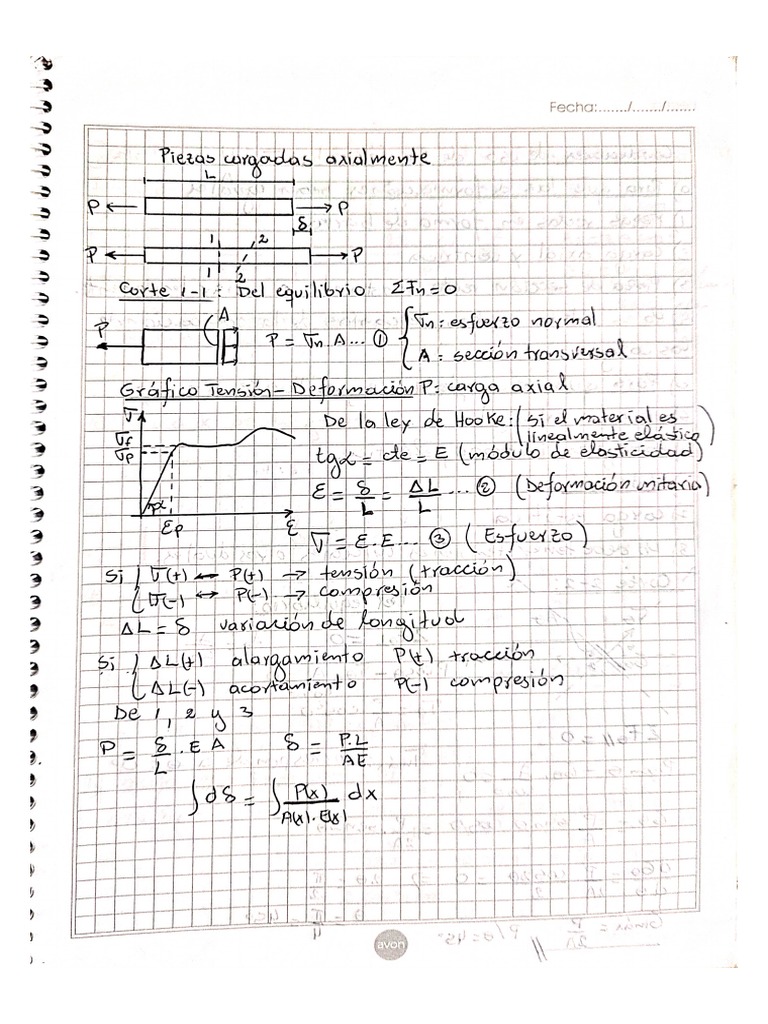 Fecha:......./......./.......
Piezas cargadas axialmente
L
P ← → P
δ
P ← 1 2 → P
1 2
Corte 1-1: Del equilibrio ΣFn=0
P A P = σn.A... ① { σn: esfuerzo normal
A: sección transversal
Gráfico Tensión - Deformación P: carga axial
σ De la ley de Hooke: (si el material es
linealmente elástico)
σf
σp tgα = cte = E (módulo de elasticidad)
α ε = δ/L = ΔL/L ... ② (Deformación unitaria)
εp ε
σ = ε.E... ③ (Esfuerzo)
Si { σ(+) ↔ P(+) → tensión (tracción)
σ(-) ↔ P(-) → compresión
ΔL = δ variación de longitud
Si { ΔL(+) alargamiento P(+) tracción
ΔL(-) acortamiento P(-) compresión
De 1, 2 y 3
P = δ/L . E A δ = P.L/AE
∫dδ = ∫ P(x)/A(x).E(x) dx
avon